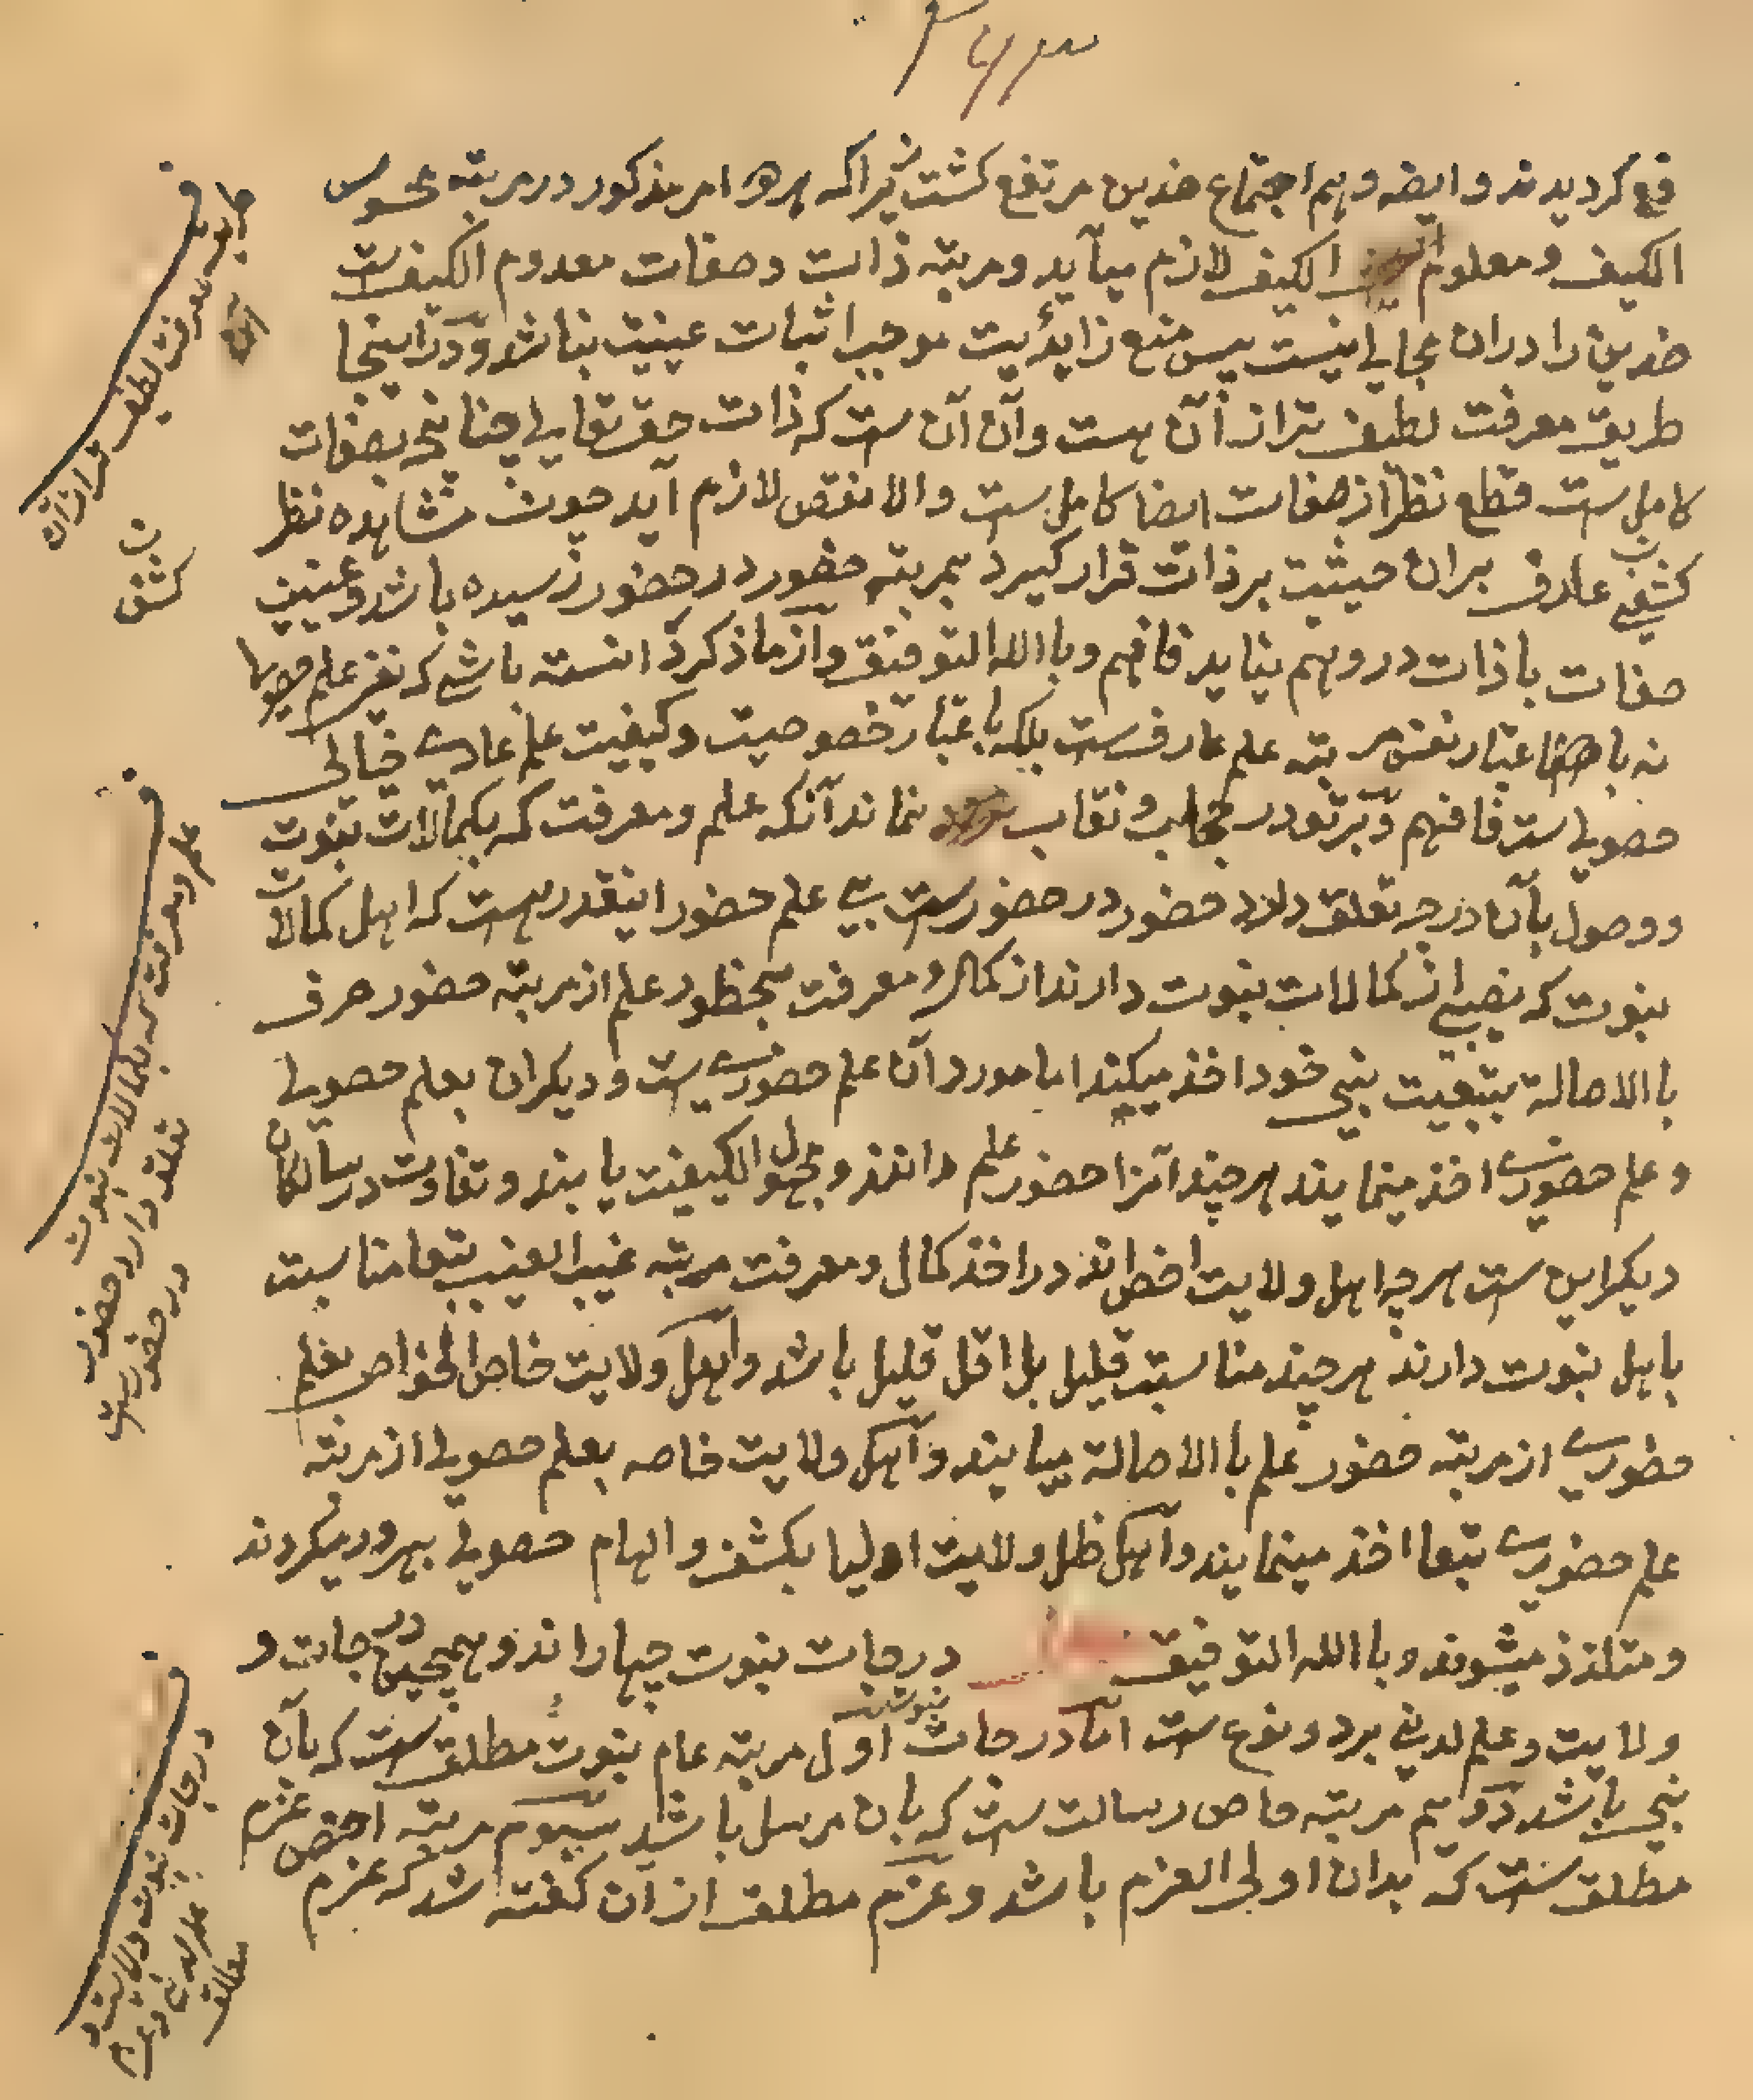 فع کردیدند و ایضه وهم اجتماع ضدین مرتفع کشت زیراکه هر امر مذکور در مرتبه محسوس
الکیف و معلوم الکیف لازم میآید و مرتبه ذات و صفات معدوم الکیف ست
ضدین را دران مجالی نیست پس منع زایدیت موجب اثبات عینیت نباشد و درینجا
طریق معرفت لطیف تر از آن هست و آن آن ست که ذات حق تعالی چنانچه بصفات
کامل ست قطع نظر از صفات ایضا کامل ست و الا نقص لازم آید چون مشاهده نظر
کشفی عارف بران حیثیت بر ذات قرار کیرد بمرتبه حضور در حضور رسیده باشد و عینیت
صفات با ذات در وهم نیاید فافهم و باالله التوفیق و از ما ذکر دانسته باشی که نفی علم حصولی
نه باعتبار نفس مرتبه علم عارف ست بلکه باعتبار خصوصیت و کیفیت علم عادی خیالی
حصولی ست فافهم و بر تو در حجاب و نقاب نماند آنکه علم و معرفت که بکمالات نبوت
و وصول بآن درجه تعلق دارد حضور در حضور ست بی علم حضور اینقدر هست که اهل کمالات
نبوت که نصیبی از کمالات نبوت دارند از کمال و معرفت بحظور علم از مرتبه حضور صرف
باالاصالة بتبعیت نبی خود اخذ میکنند اما مورد آن علم حضوری ست و دیکران بعلم حصولی
و علم حضوری اخذ مینمایند هر چند آنرا حضور علم دانند و مجهول الکیفیت یابند و تفاوت در سالکان
دیکر این ست هر چه اهل ولایت اخص اند در اخذ کمال و معرفت مرتبه غیب الغیب تبعا مناسبت
باهل نبوت دارند هر چند مناسبت قلیل بل اقل قلیل باشد و اهل ولایت خاص الخواص بعلم
حضوری از مرتبه حضور علم باالاصالة مییابند و اهل ولایت خاصه بعلم حصولی از مرتبه
علم حضوری تبعا اخذ مینمایند و اهل ظل ولایت اولیا بکشف و الهام حصولی بهرور میکردند
و متلذذ میشوند و باالله التوفیق درجات نبوت چهار اند و همچنین درجات و
ولایت و علم لدنی بر دو نوع ست اما درجات نبوت اول مرتبه عام نبوت مطلق ست که بآن
نبی باشد دویم مرتبه خاص رسالت ست که بان مرسل باشد سیوم مرتبه اخص عزم
مطلق ست که بدان اولی العزم باشد و عزم مطلق از آن کفته شد که عزم
طریق معرفت لطیف تر از آن
کشف
علم و معرفت که بکمالات نبوت
تعلق دارد حضور
در حضور ست
درجات نبوت و ولایت و
علم لدنی و عزم
مطلق